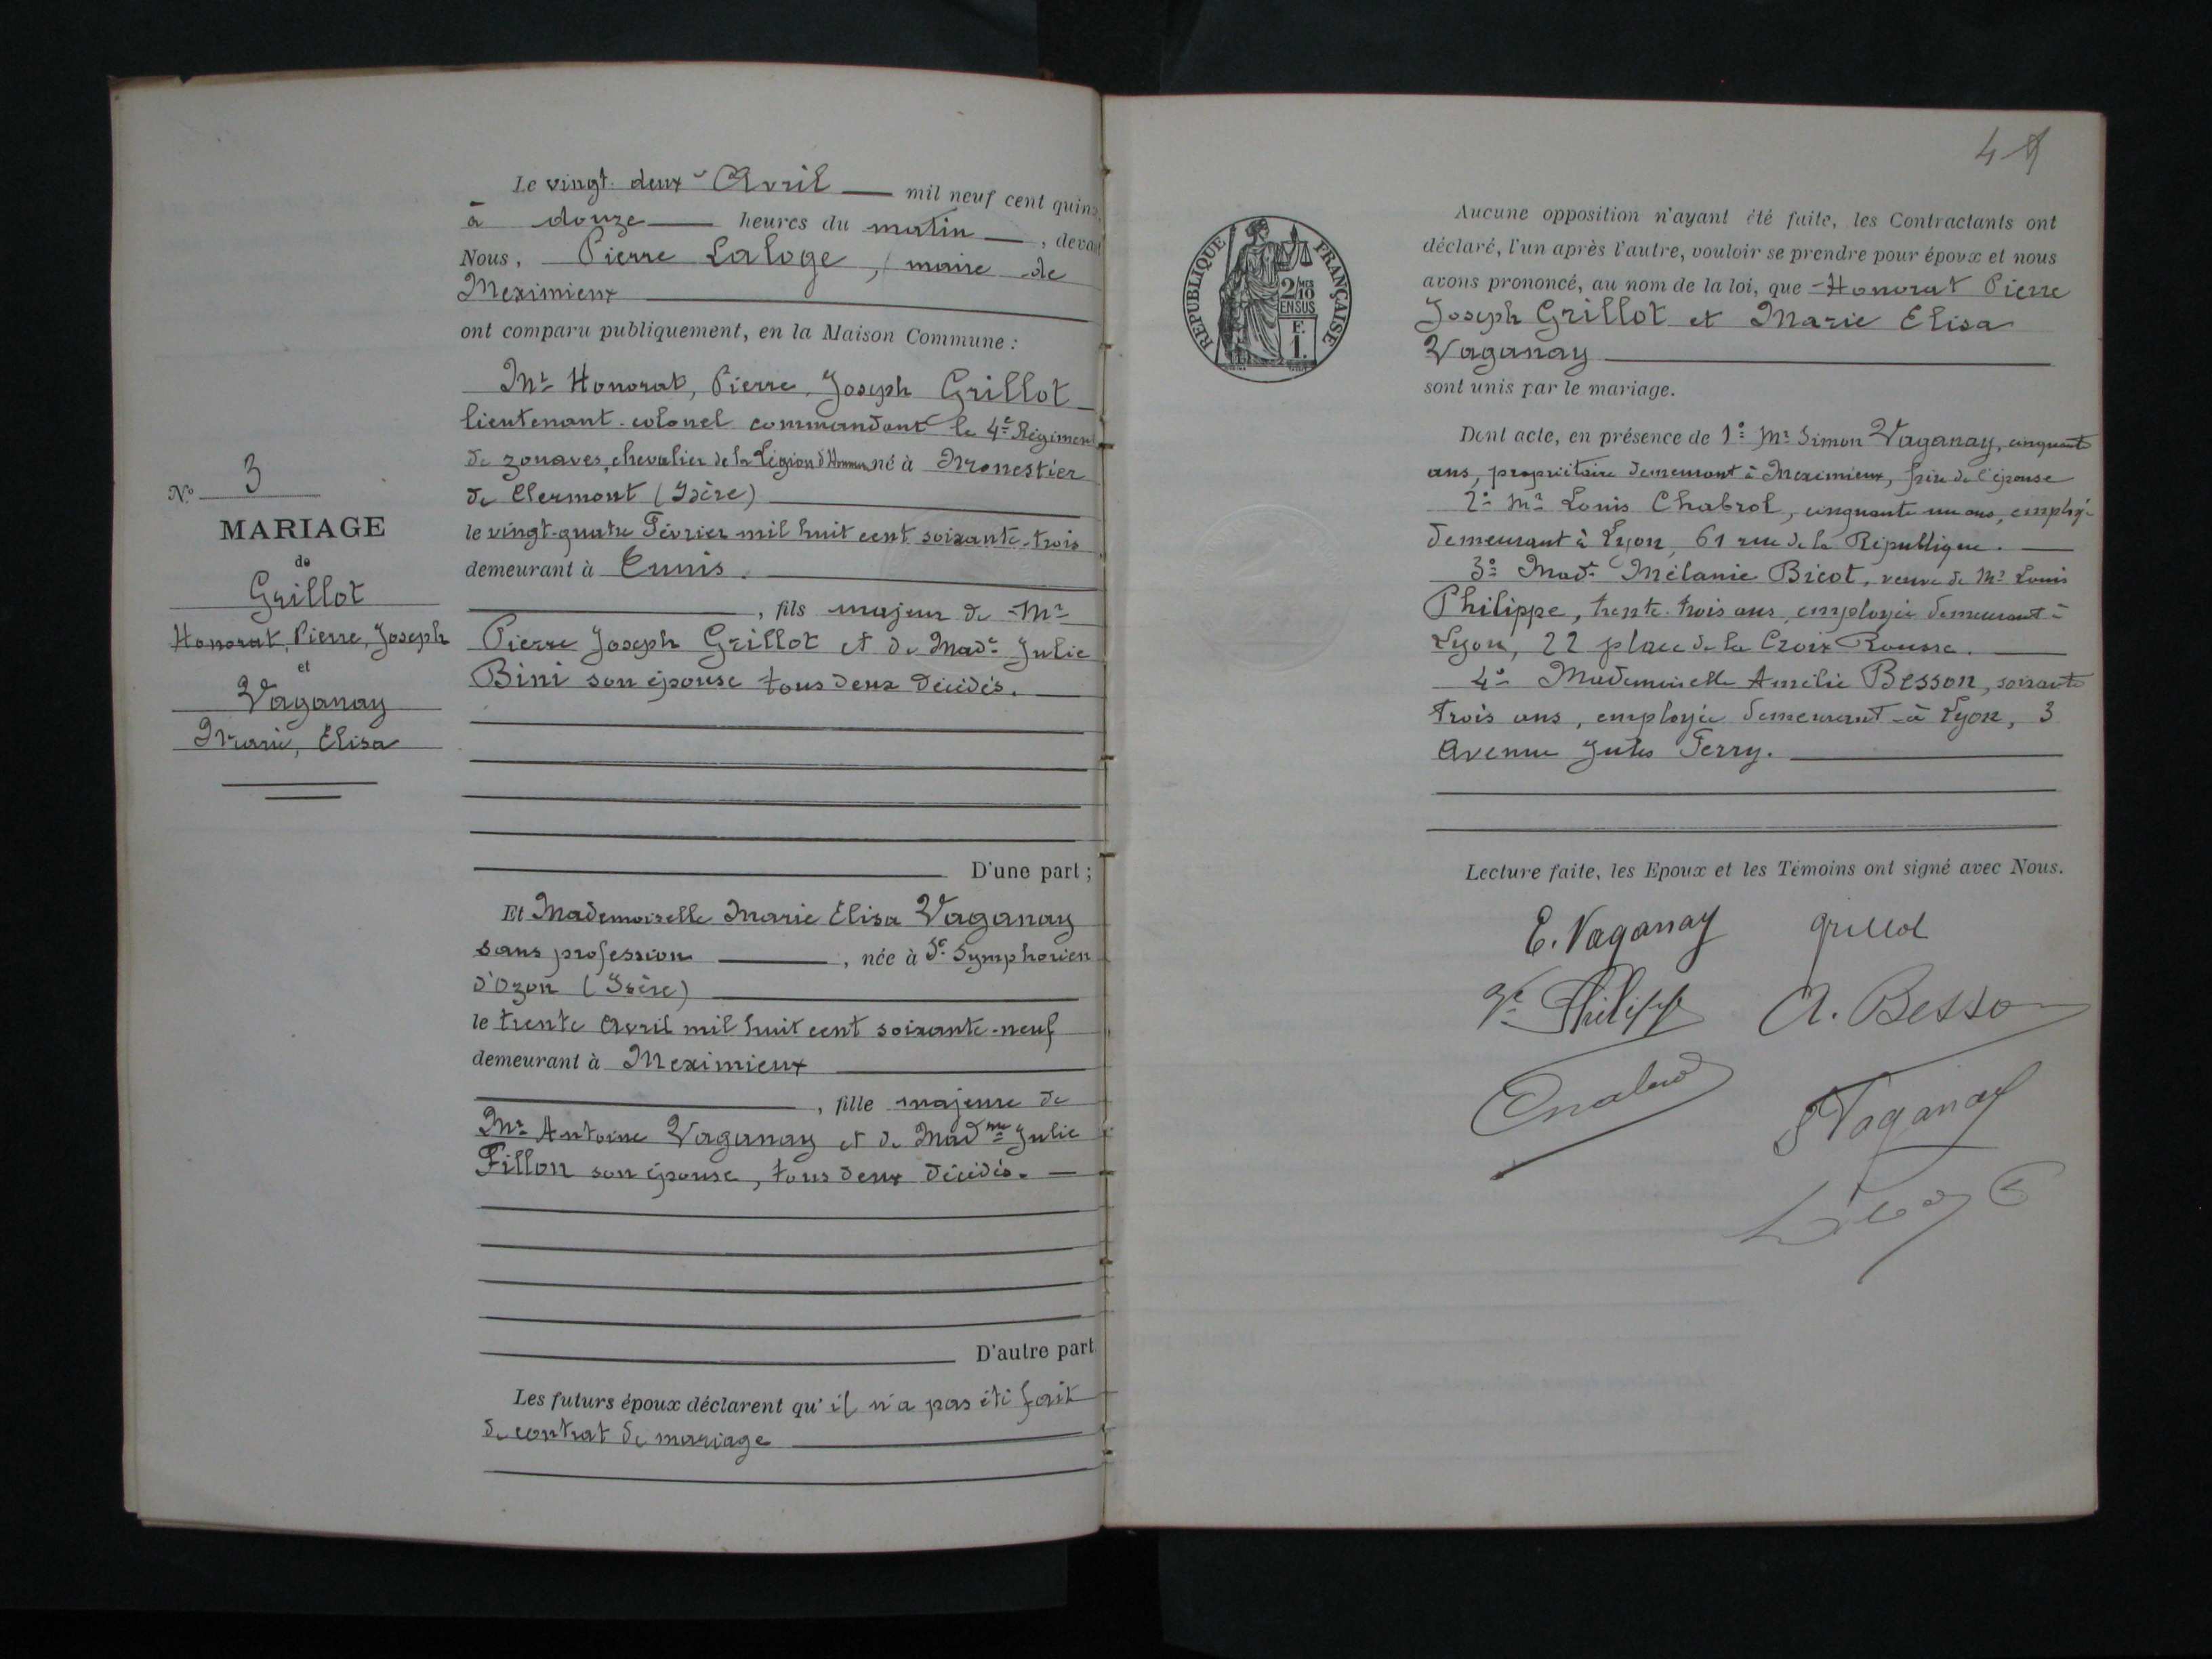 Le vingt deux Avril mil neuf cent quinz
à douze heures du matin, devant
Nous, Pierre Laloge, maire de
Meximieux
ont comparu publiquement, en la Maison Commune :
Mr Honorat, Pierre, Joseph Grillot
lieutenant-colonel commandant le 4e Régiment
de zouaves, chevalier de la Légion d'Honneur né à Monestier
de Clermont (Isère)
le vingt-quatre Février mil huit cent soixante-trois
demeurant à Tunis.
, fils majeur de Mr
Pierre Joseph Grillot et de Made Julie
Bini son épouse tous deux décédés.
D'une part ;
Et Mademoiselle Marie Elisa Vaganay
sans profession, née à St Symphorien
d'Ozon (Isère)
le trente Avril mil huit cent soixante-neuf
demeurant à Meximieux
, fille majeure de
Mr Antoine Vaganay et de Madme Julie
Fillon son épouse, tous deux décédés.
D'autre part
Les futurs époux déclarent qu'il n'a pas été fait
de contrat de mariage
No 3
MARIAGE
de
Grillot
Honorat, Pierre, Joseph
et
Vaganay
Marie, Elisa
4
RÉPUBLIQUE FRANÇAISE
2/10
EN SUS
F.
1.
Aucune opposition n'ayant été faite, les Contractants ont
déclaré, l'un après l'autre, vouloir se prendre pour époux et nous
avons prononcé, au nom de la loi, que Honorat Pierre
Joseph Grillot et Marie Elisa
Vaganay
sont unis par le mariage.
Dont acte, en présence de 1o Mr Simon Vaganay, cinquante
ans, propriétaire demeurant à Meximieux, frère de l'épouse
2o Mr Louis Chabrol, cinquante un ans, employé
demeurant à Lyon, 61 rue de la République.
3o Made Mélanie Bicot, veuve de Mr Louis
Philippe, trente-trois ans, employée demeurant à
Lyon, 22 place de la Croix Rousse.
4o Mademoiselle Amélie Besson, soixante
trois ans, employée demeurant à Lyon, 3
Avenue Jules Ferry.
Lecture faite, les Epoux et les Témoins ont signé avec Nous.
E. Vaganay Grillot
Ve Philippe A. Besson
S Vaganay